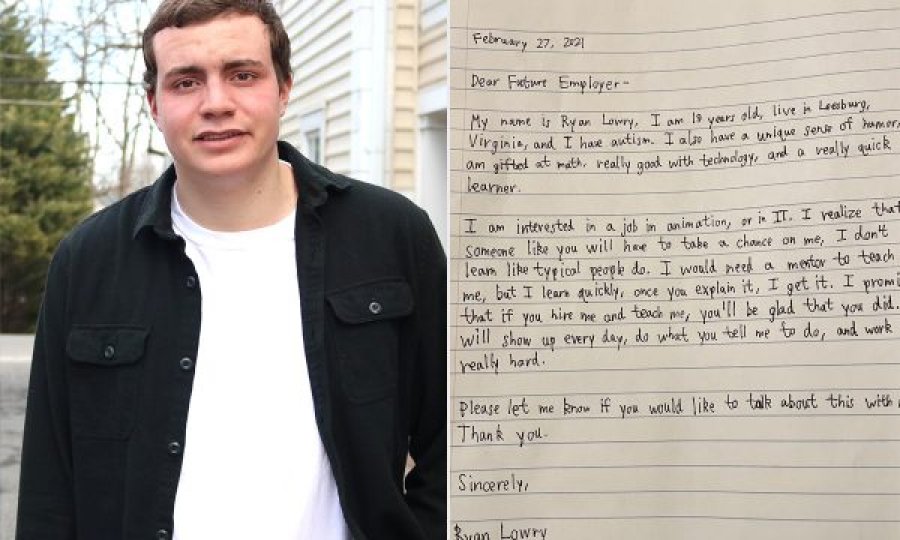 February 27, 2021
Dear Future Employer-
My name is Ryan Lowry, I am 19 years old, live in Leesburg,
Virginia, and I have autism. I also have a unique sense of humor,
am gifted at math, really good with technology, and a really quick
learner.
I am interested in a job in animation, or in IT. I realize that
someone like you will have to take a chance on me, I don't
learn like typical people do. I would need a mentor to teach
me, but I learn quickly, once you explain it, I get it. I promi
that if you hire me and teach me, you'll be glad that you did.
will show up every day, do what you tell me to do, and work
really hard.
Please let me know if you would like to talk about this with
Thank you.
Sincerely,
Ryan Lowry